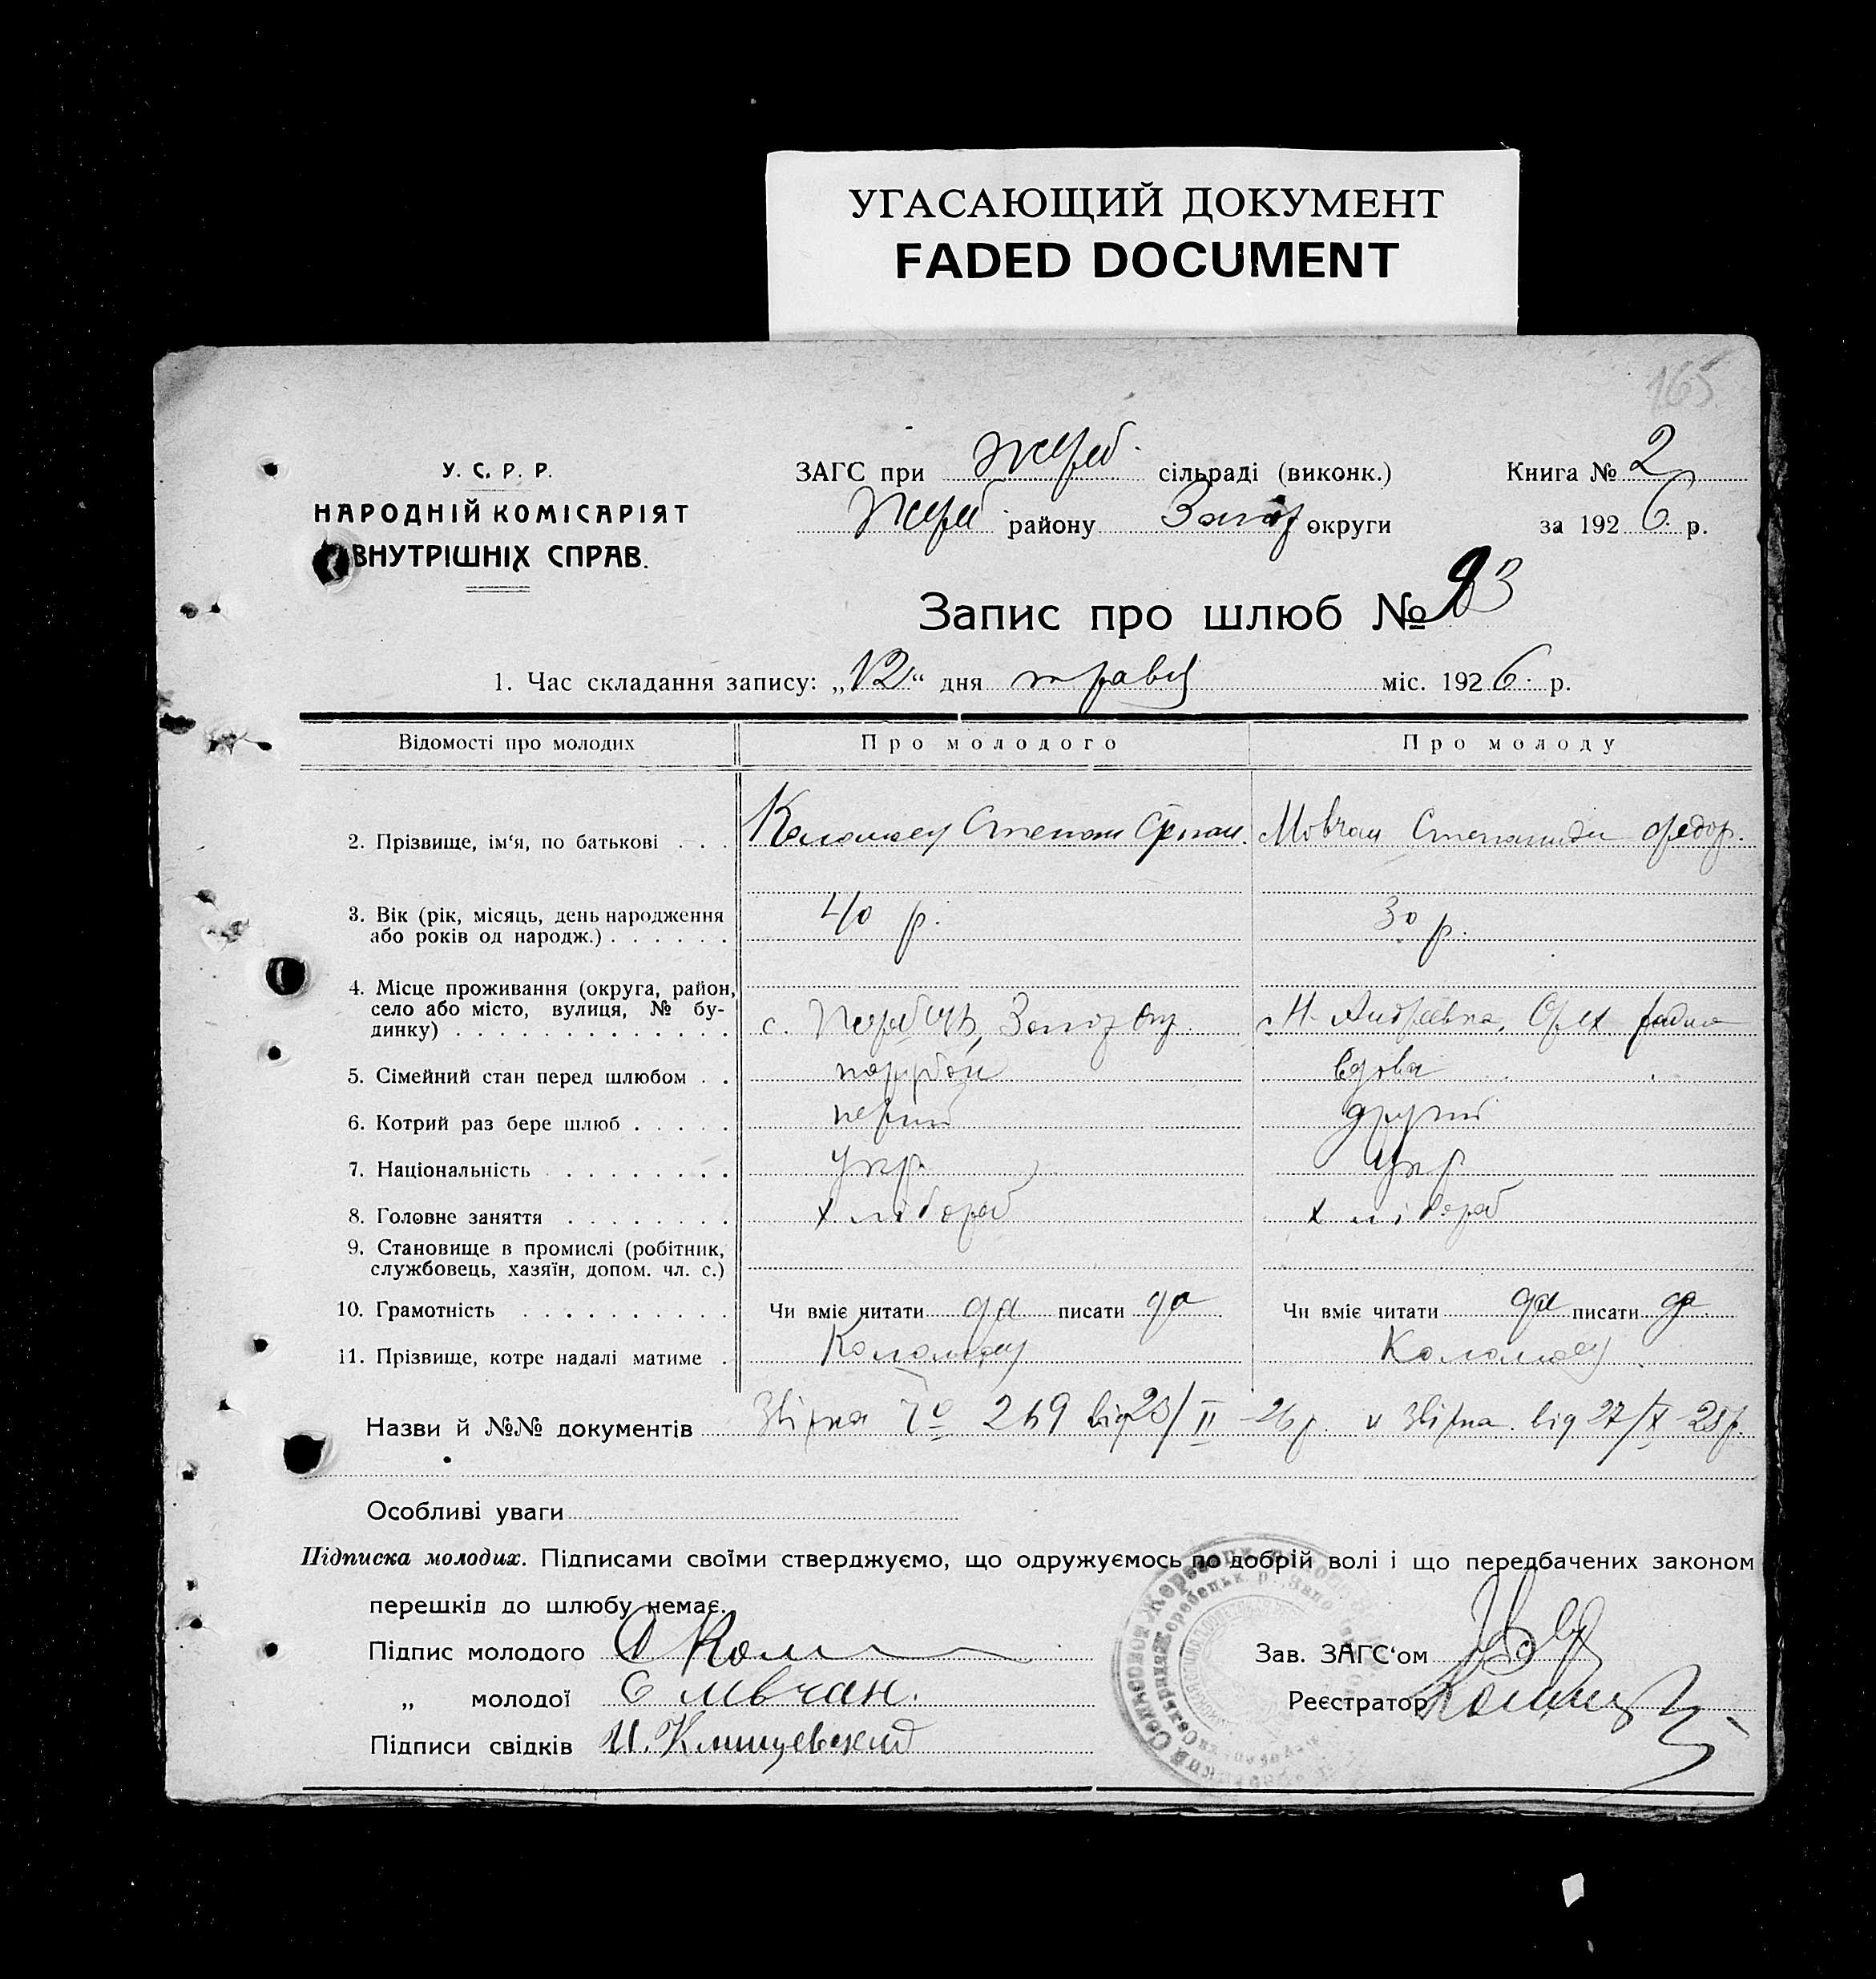 УГАСАЮЩИЙ ДОКУМЕНТ
FADED DOCUMENT
165
У. С. Р. Р.
НАРОДНІЙ КОМІСАРІЯТ
ВНУТРІШНІХ СПРАВ.
ЗАГС при Жереб. сільраді (виконк.)
Книга № 2
Жереб району Запор округи
за 1926 р.
Запис про шлюб № 93
1. Час складання запису: „12“ дня травня міс. 1926 р.
Відомості про молодих
Про молодого
Про молоду
2. Прізвище, ім‘я, по батькові . . .
Коломоец Степан
Мовчан Степанида Федор.
3. Вік (рік, місяць, день народження
або років од народж.) . . . . . .
40 р.
30 р.
4. Місце проживання (округа, район,
село або місто, вулиця, № бу-
динку) . . . . . . . . . . . . .
с. Жеребець, Запор Окр
с. Н-Андреевка, Орех района
5. Сімейний стан перед шлюбом . .
парубок
вдова
6. Котрий раз бере шлюб . . . . .
перший
другий
7. Національність . . . . . . . .
Укр.
Укр
8. Головне заняття . . . . . . . .
хлібороб
хлібороб
9. Становище в промислі (робітник,
службовець, хазяїн, допом. чл. с.)
10. Грамотність . . . . . . . . . .
Чи вміє читати да писати да
Чи вміє читати да писати да
11. Прізвище, котре надалі матиме .
Коломоец
Коломоец
Назви й №№ документів 269 від 23/II 26 р. від 27/X 25 р.
Особливі уваги
Підписка молодих. Підписами своїми стверджуємо, що одружуємось по добрій волі і що передбачених законом
перешкід до шлюбу немає.
Підпис молодого С Колом
Зав. ЗАГС‘ом
„ молодої С Мвчан.
Реєстратор
Підписи свідків И.